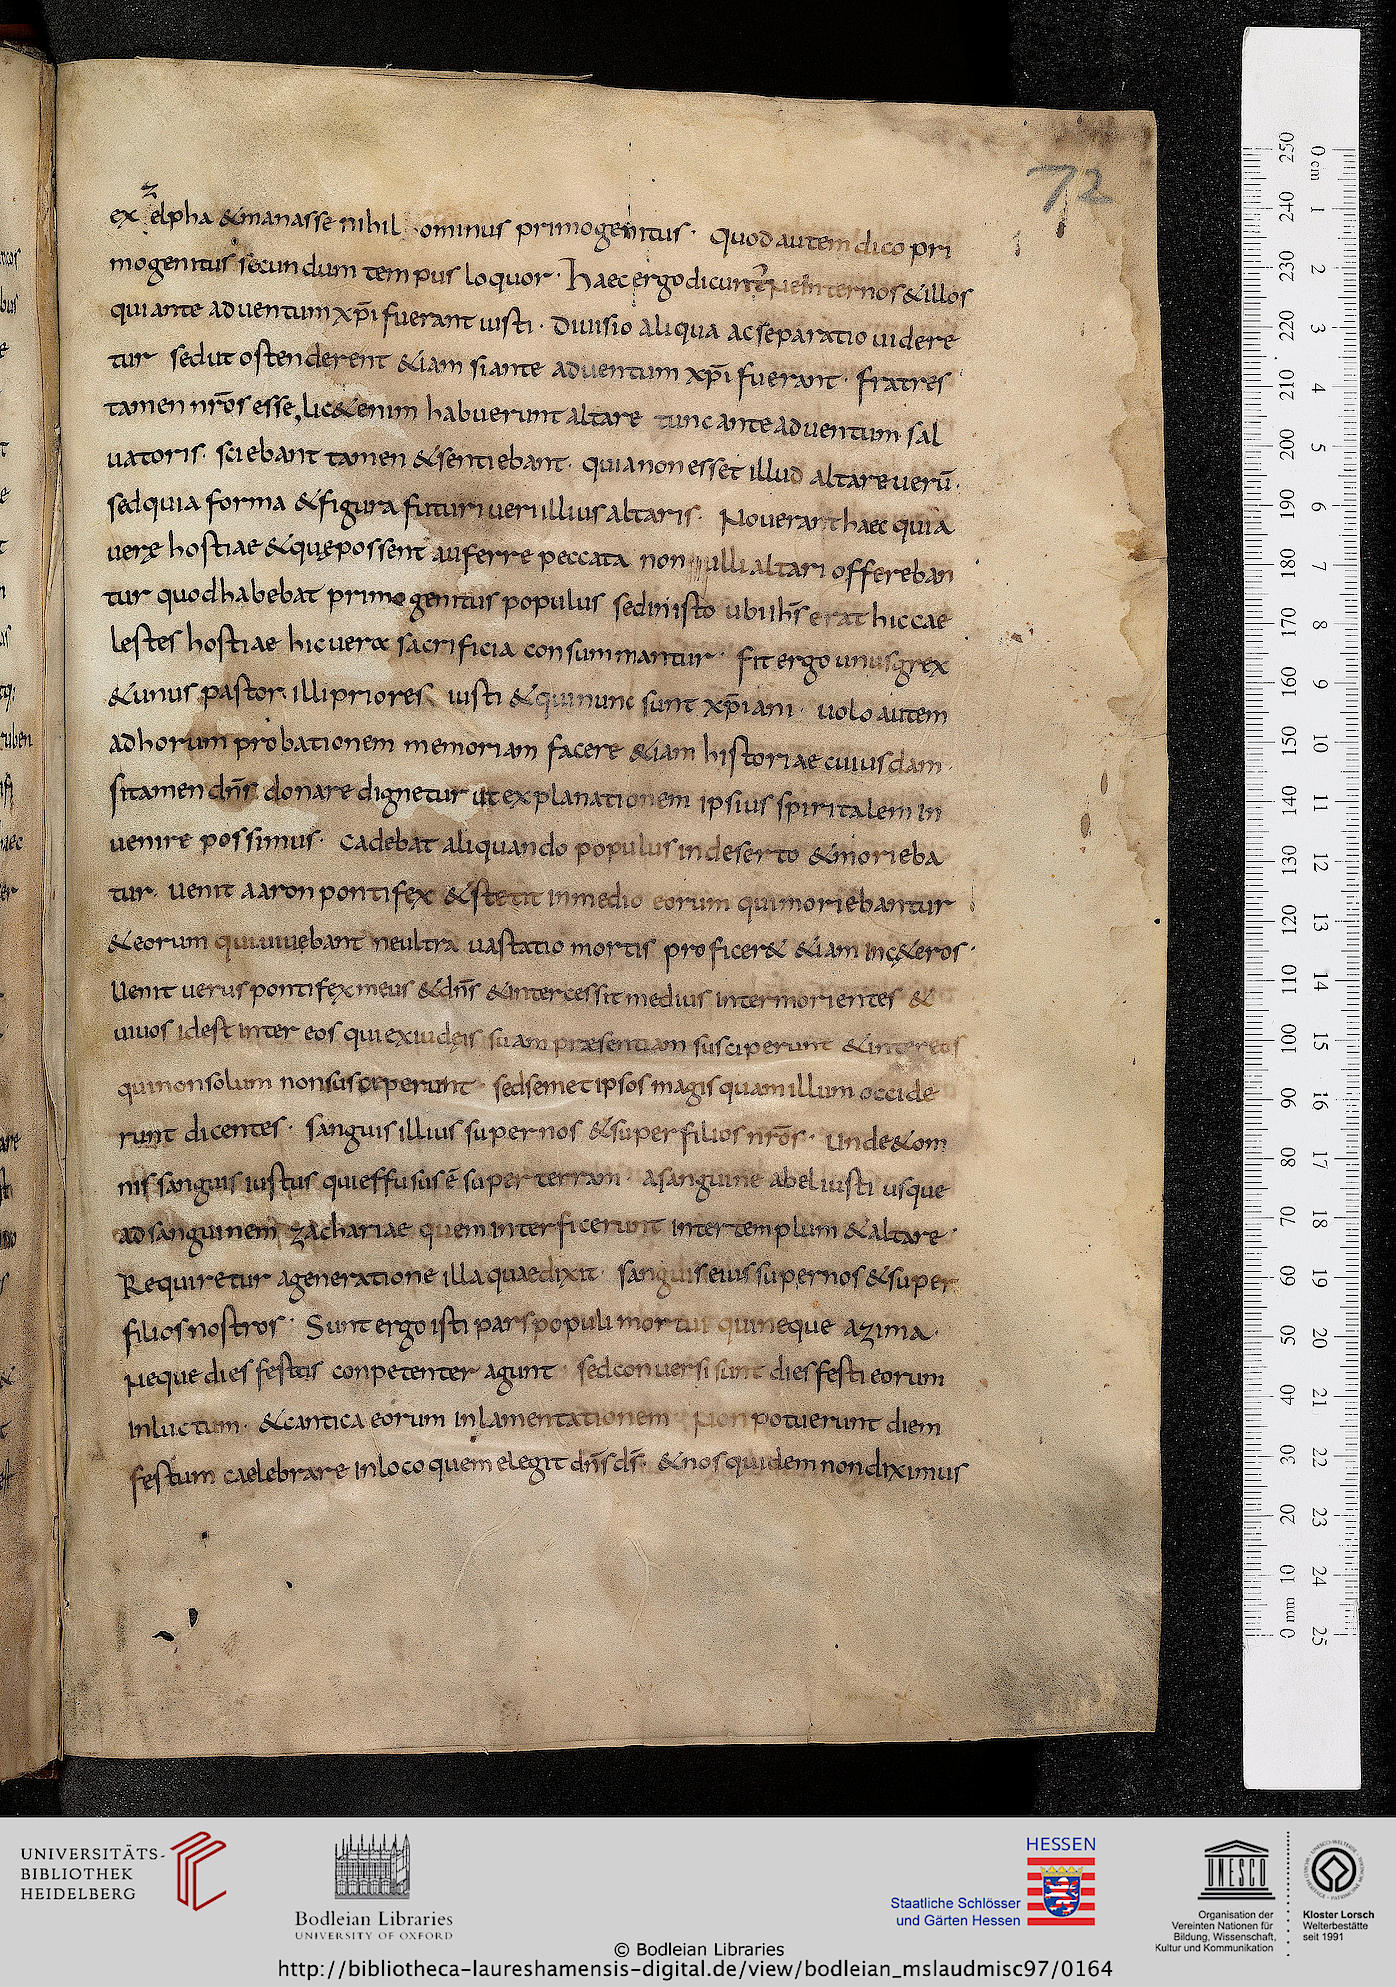 72
ex zelpha & manasse nihil ominus primogenitus · quod autem dico pri
mogenitus secundum tempus loquor · haec ergo dicunt̄ ne inter nos & illos
qui ante aduentum xp̄i fuerant iusti · diuisio aliqua ac separatio uidere
tur sed ut ostenderent &iam si ante aduentum xp̄i fuerant · fratres
tamen nr̄os esse, lic& enim habuerunt altare tunc ante aduentum sal
uatoris · sciebant tamen & sentiebant · quia non esset illud altare uerū ·
sed quia forma & figura futuri ueri illius altaris · Nouerant haec quia
uerę hostiae & quę possent auferre peccata non ulli altari offereban
tur quod habebat primogenitus populus sed in isto ubi ih̄s erat hic cae
lestes hostiae hic uera sacrificia consummantur · fit ergo unus grex
& unus pastor illi priores iusti & qui nunc sunt xp̄iani · uolo autem
ad horum probationem memoriam facere &iam historiae cuiusdam ·
si tamen dn̄s donare dignetur ut explanationem ipsius spiritalem in
uenire possimus · cadebat aliquando populus in deserto & morieba
tur · uenit aaron pontifex & stetit in medio eorum qui moriebantur
& eorum qui uiuebant ne ultra uastatio mortis proficer& &iam in c&eros ·
Uenit uerus pontifex meus & dn̄s & intercessit medius inter morientes &
uiuos id est inter eos qui ex iudęis suam praesentiam susciperunt & inter eos
qui non solum non susceperunt · sed semet ipsos magis quam illum occide
runt dicentes · sanguis illius super nos & super filios nr̄os · unde & om
nis sanguis iustus qui effusus ē super terram · a sanguine abel iusti usque
ad sanguinem zachariae quem interficerunt inter templum & altare ·
Requiretur a generatione illa quae dixit · sanguis eius super nos & super
filios nostros · Sunt ergo isti pars populi mortui qui neque azima ·
Neque dies festus conpetenter agunt sed conuersi sunt dies festi eorum
in luctum · & cantica eorum in lamentationem Non potuerunt diem
festum caelebrare in loco quem elegit dn̄s d̄s · & nos quidem non diximus
0 cm 1 2 3 4 5 6 7 8 9 10 11 12 13 14 15 16 17 18 19 20 21 22 23 24 25
250 240 230 220 210 200 190 180 170 160 150 140 130 120 110 100 90 80 70 60 50 40 30 20 10 0 mm
UNIVERSITÄTS-
BIBLIOTHEK
HEIDELBERG
Bodleian Libraries
UNIVERSITY OF OXFORD
HESSEN
Staatliche Schlösser
und Gärten Hessen
UNESCO
Organisation der
Vereinten Nationen für
Bildung, Wissenschaft,
Kultur und Kommunikation
Kloster Lorsch
Welterbestätte
seit 1991
© Bodleian Libraries
http://bibliotheca-laureshamensis-digital.de/view/bodleian_mslaudmisc97/0164